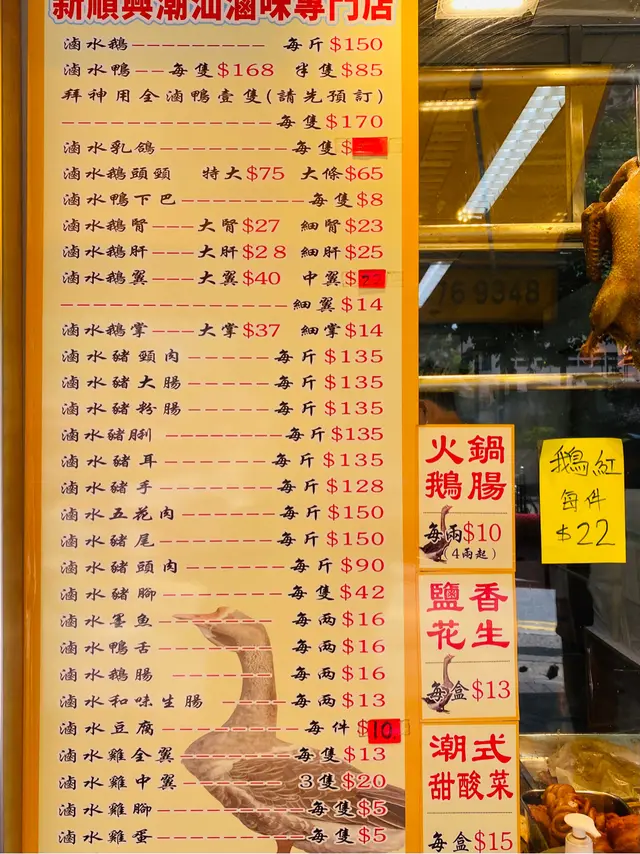 新順興潮汕滷味專門店
滷水鵝----------每斤$150
滷水鴨--每隻$168 半隻$85
拜神用全滷鴨壹隻(請先預訂)
----------------每隻$170
滷水乳鴿----------每隻$
滷水鵝頭頸 特大$75 大條$65
滷水鴨下巴---------每隻$8
滷水鵝腎---大腎$27 細腎$23
滷水鵝肝---大肝$28 細肝$25
滷水鵝翼---大翼$40 中翼$
-----------------細翼$14
滷水鵝掌---大掌$37 細掌$14
滷水豬頸肉------每斤$135
滷水豬大腸------每斤$135
滷水豬粉腸------每斤$135
滷水豬脷--------每斤$135
滷水豬耳-------每斤$135
滷水豬手-------每斤$128
滷水五花肉------每斤$150
滷水豬尾-------每斤$150
滷水豬頭肉------每斤$90
滷水豬腳--------每隻$42
滷水墨魚--------每両$16
滷水鴨舌--------每両$16
滷水鵝腸-------每両$16
滷水和味生腸 ---每両$13
滷水豆腐---------每件$10
滷水雞全翼--------每隻$13
滷水雞中翼-------3隻$20
滷水雞腳---------每隻$5
滷水雞蛋---------每隻$5
火鍋
鵝腸
每兩$10
(4兩起)
鹽香
花生
每盒$13
潮式
甜酸菜
每盒$15
鵝紅
每件
$22
76 9348